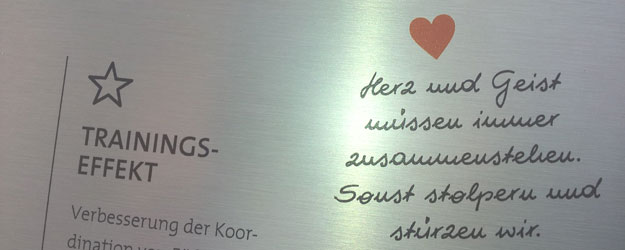 TRAININGS-
EFFEKT
Verbesserung der Koor-
dination von
Herz und Geist
müssen immer
zusammenstehen.
Sonst stolpern und
stürzen wir.